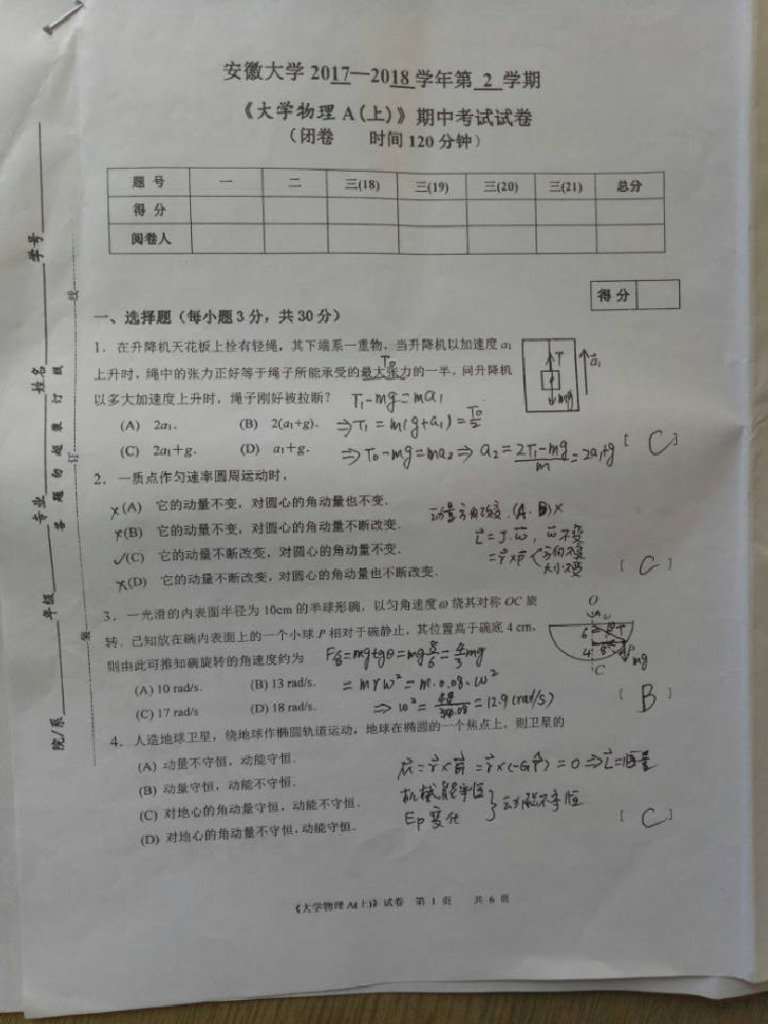 安徽大学 2017—2018 学年第 2 学期
《大学物理 A(上)》期中考试试卷
(闭卷 时间 120 分钟)
题 号 一 二 三(18) 三(19) 三(20) 三(21) 总分
得 分
阅卷人
得 分
一、选择题(每小题 3 分,共 30 分)
1. 在升降机天花板上拴有轻绳,其下端系一重物,当升降机以加速度 a₁
T₀
上升时,绳中的张力正好等于绳子所能承受的最大张力的一半,问升降机
以多大加速度上升时,绳子刚好被拉断? T₁-mg=ma₁
T
a₁
mg
(A) 2a₁. (B) 2(a₁+g). ⇒T₁=m(g+a₁)=T₀/2
(C) 2a₁+g. (D) a₁+g. ⇒T₀-mg=ma₂⇒a₂=(2T₁-mg)/m=2a₁+g [ C ]
2. 一质点作匀速率圆周运动时,
×(A) 它的动量不变,对圆心的角动量也不变.
×(B) 它的动量不变,对圆心的角动量不断改变.
✓(C) 它的动量不断改变,对圆心的角动量不变.
×(D) 它的动量不断改变,对圆心的角动量也不断改变.
动量方向改变.(A.B)×
L=J·ω, ω不变
=r×p 方向不变
大小不变
[ C ]
3. 一光滑的内表面半径为 10cm 的半球形碗,以匀角速度 ω 绕其对称 OC 旋
转.已知放在碗内表面上的一个小球 P 相对于碗静止,其位置高于碗底 4 cm,
则由此可推知碗旋转的角速度约为 F合=mgtgθ=mg8/6=4/3mg
O
6
4 8 P
C
mg
(A) 10 rad/s. (B) 13 rad/s. =mrω²=m·0.08·ω²
(C) 17 rad/s (D) 18 rad/s. =12.9(rad/s) [ B ]
4. 人造地球卫星,绕地球作椭圆轨道运动,地球在椭圆的一个焦点上,则卫星的
(A) 动量不守恒,动能守恒.
(B) 动量守恒,动能不守恒.
(C) 对地心的角动量守恒,动能不守恒.
(D) 对地心的角动量不守恒,动能守恒.
M=r×F=r×(-Gr̂)=0⇒L=恒量
机械能守恒
Ep变化
动能不守恒
[ C ]
《大学物理 A(上)》试卷 第 1 页 共 6 页
院/系 年级 专业 姓名 学号
答 题 勿 超 装 订 线
装 订 线